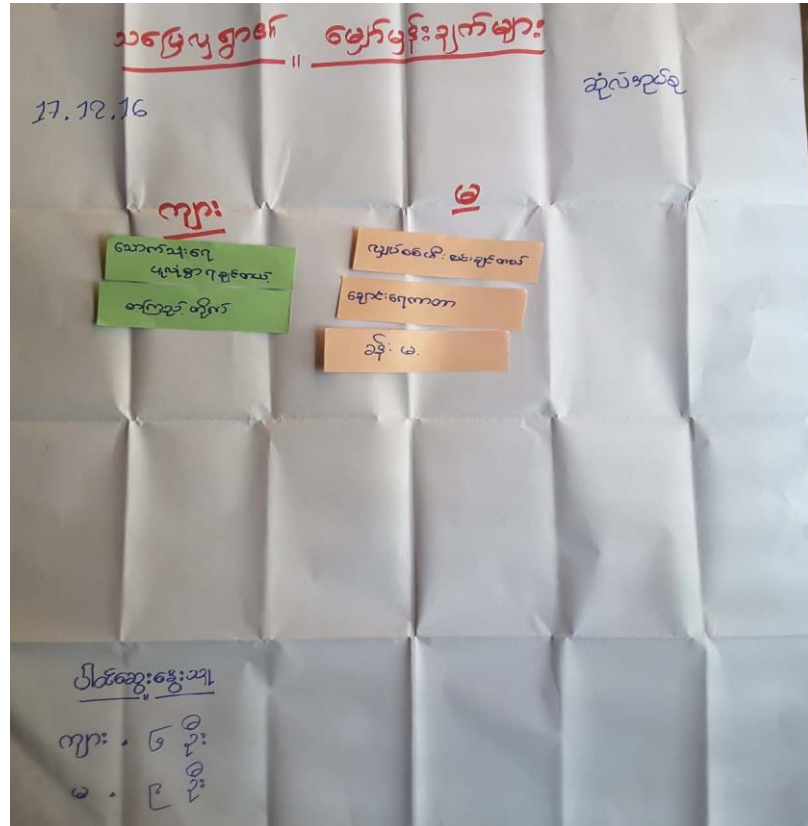 သပြေလှရွာ၏ ။ မျှော်မှန်းချက်များ
17.12.16
ဆုံလင်အုပ်စု
ကျား
မ
သောက်သုံးရေ
ဖူလုံစွာရချင်တယ်
စာကြည့်တိုက်
လျှပ်စစ်မီး လင်းချင်တယ်
ချောင်းရေကာတာ
ခန်း မ.
ပါဝင်ဆွေးနွေးသူ
ကျား . ၆ ဦး
မ . ၉ ဦး